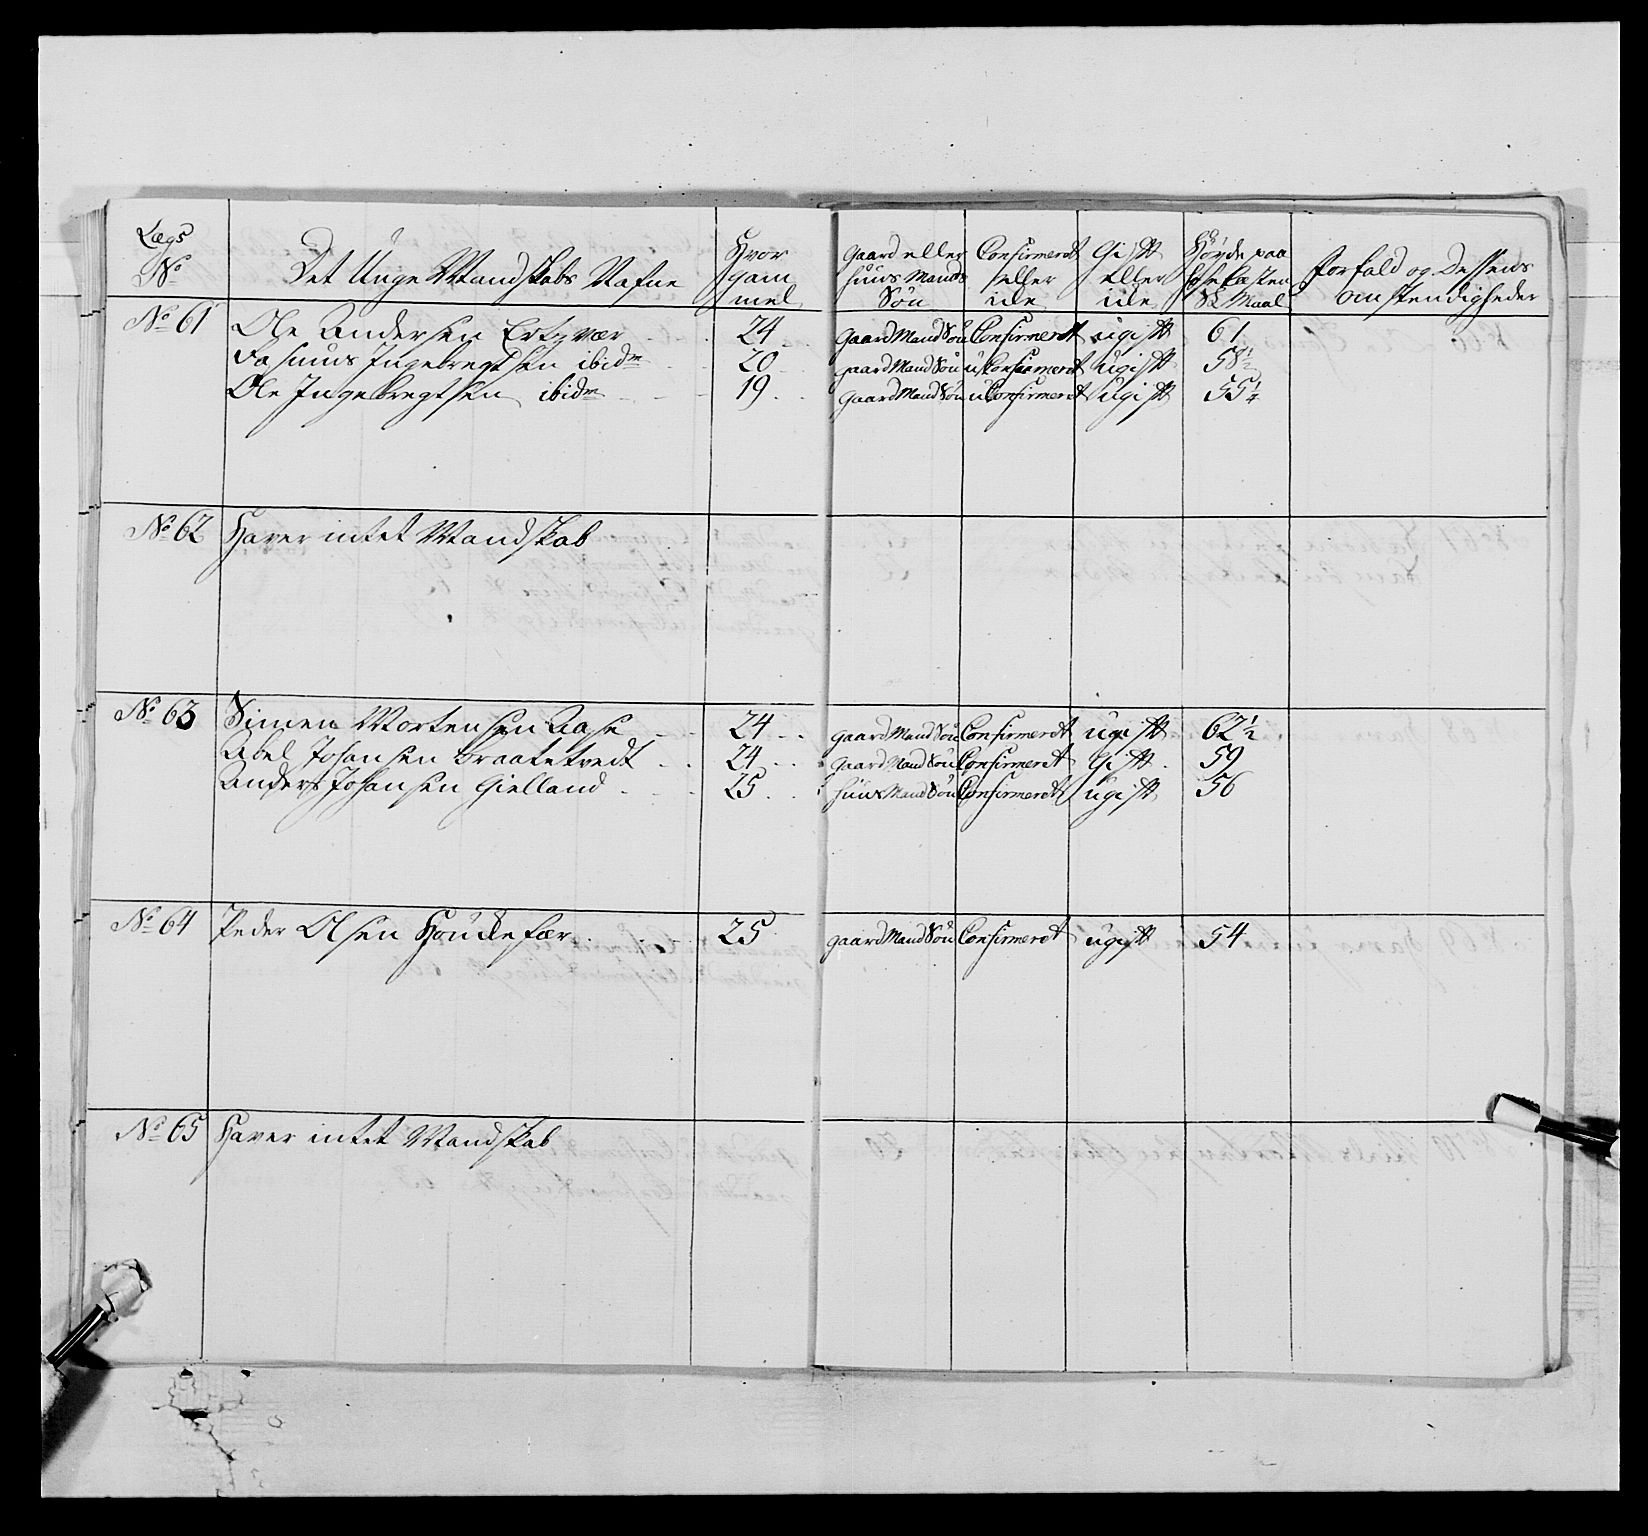 Lægs No
Det Unge Mandskabs Nafne
Hvor gam mel
Gaard eller Huus Mands Søn
Confirmeret eller icke
Gift eller icke
Høyde paa Hosekasten Maal
Forfald og Dessens omstendigheder
No 61 Ole Andersen Ertzvær 24 Gaard Mand Søn Confirmeret ugift 61
Rasmus Ingebregtsen ibidm 20 gaard Mand Søn uConfirmeret ugift 58½
Ole Ingebregtsen ibidm 19 Gaard Mand Søn uConfirmeret ugift 55¼
No 62 Haver intet Mandskab
No 63 Simen Mortensen Aase 24 gaard Mand Søn Confirmeret ugift 62½
Abel Johansen Braatetvedt 24 gaard Mand Søn Confirmeret Gift 59
Anders Johansen Gielland 25 Huus Mand Søn Confirmeret ugift 56
No 64 Peder Olsen 25 gaard Mand Søn Confirmeret ugift 54
No 65 Haver intet Mandskab